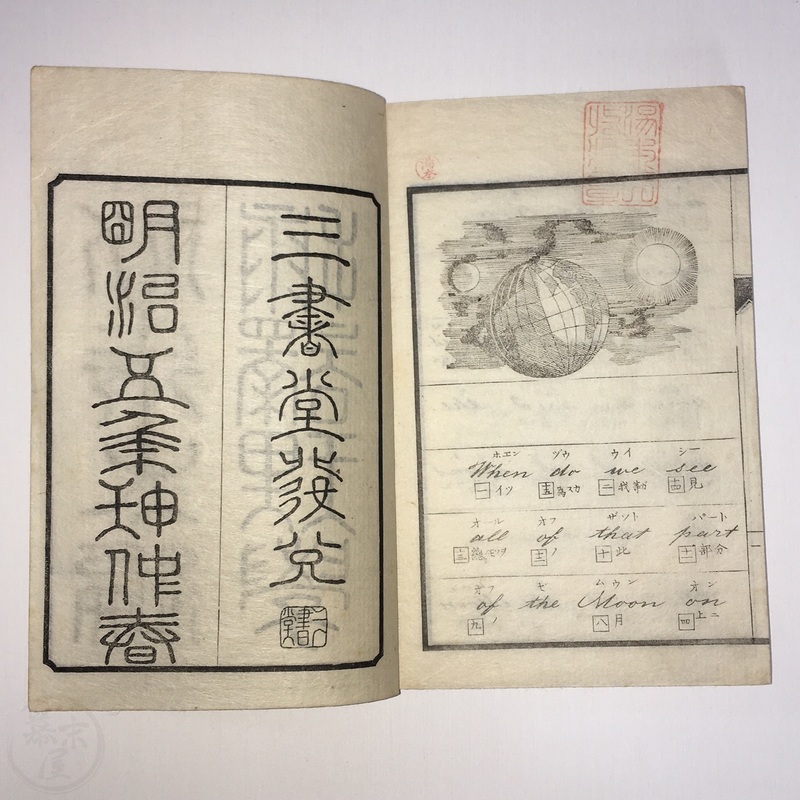 三書堂發兌
明治五年壬申仲春
ホエン ヅウ ウイ シー
When do we see
一 イツ 十五 為スカ 二 我輩ガ 十四 見
オール オフ ザット パート
all of that part
十三 十二 ノ 十 此 十一 部分
オフ ゼ ムウン オン
of the Moon on
九 ノ 八 月 四 上ニ